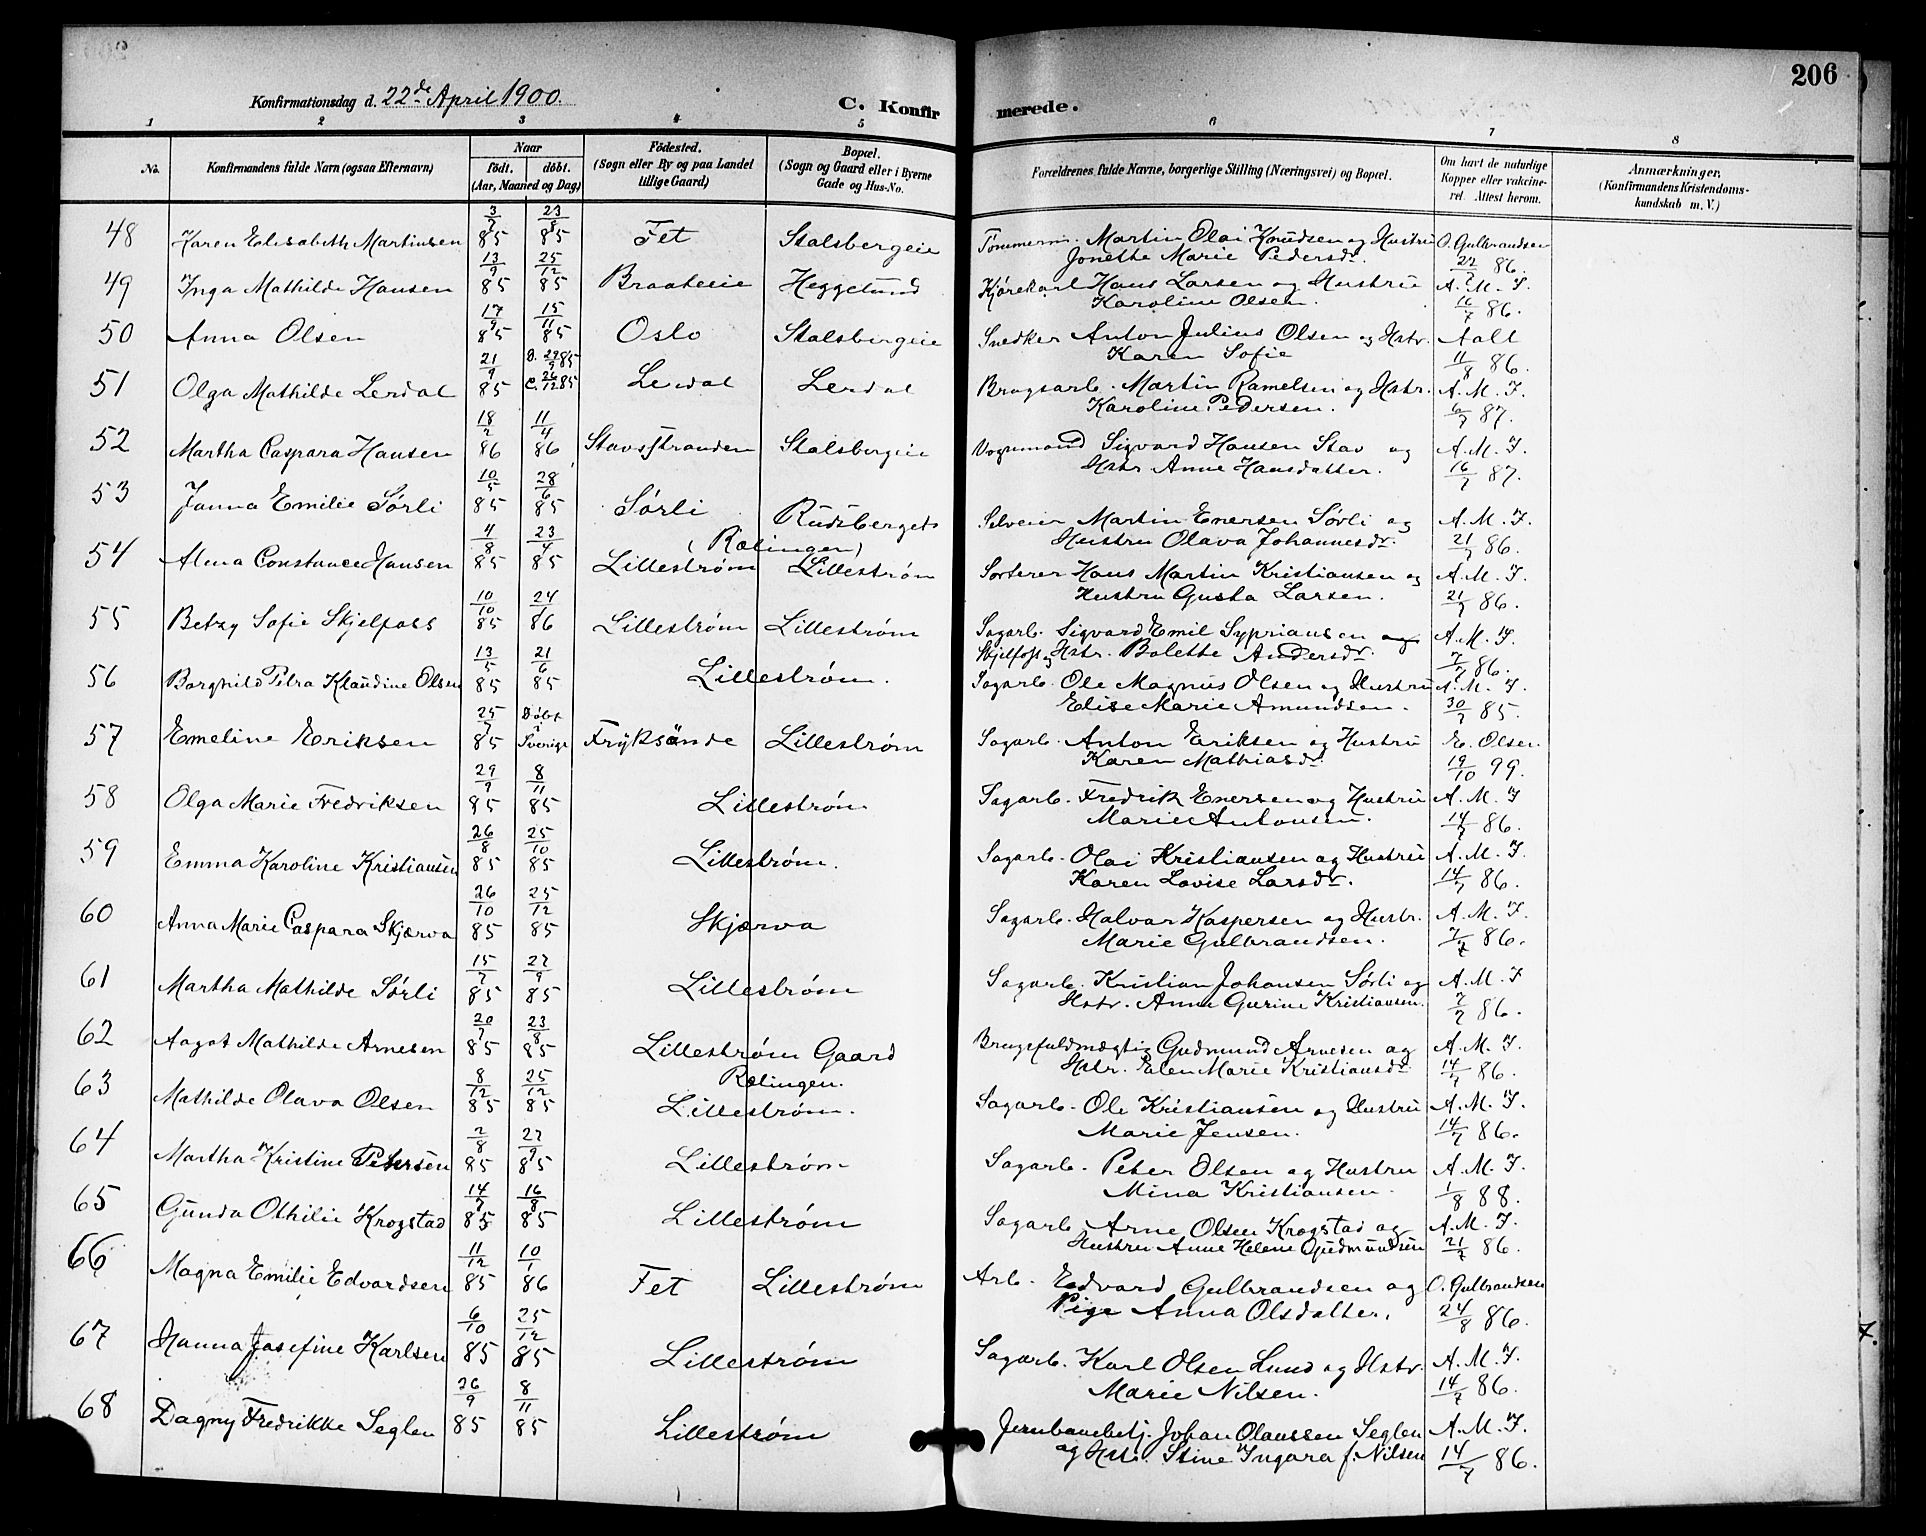 206
Konfirmationsdag d. 22de April 1900.
C. Konfirmerede.
1 2 3 4 5 6 7 8
No.
Konfirmandens fulde Navn (ogsaa Efternavn)
Naar
født. døbt.
(Aar, Maaned og Dag)
Fødested.
(Sogn eller By og paa Landet
tillige Gaard)
Bopæl.
(Sogn og Gaard eller i Byerne
Gade og Hus-No.
Forældrenes fulde Navne, borgerlige Stilling (Næringsvei) og Bopæl.
Om havt de naturlige
Kopper eller vakcine-
ret. Attest herom.
Anmærkninger,
(Konfirmandens Kristendoms-
kundskab m. V.)
48 Karen Elisabeth Martinsen 85 23/8 85 Fet Stalsbergeie Tømmerm. Martin Olai Knudsen og Hustru O. Gulbrandsen
Jonette Marie Pedersdr. 86.
49 Inga Mathilde Hansen 13/9 85 25/12 85 Braateeie Heggelund Kjørekarl Hans Larsen og Hustru A. M. F.
Karoline Olsen. 16/7 86.
50 Anna Olsen 17/9 85 15/11 85 Oslo Stalsbergeie Snedker Anton Julius Olsen og Hstr. Aall
Karen Sofie 11/8 86.
51 Olga Mathilde Lerdal 21/9 85 D. 29/9 85 C. 26/12 85 Lerdal Lerdal Brugsarb. Martin Ramelsen og Hstr. A. M. F.
Karoline Pedersen. 87.
52 Martha Caspara Hansen 18/2 86 11/4 86 Stavsstranden Stalsbergeie Vognmand Sigvard Hansen Stav og A. M. F.
Hstr Anne Hansdatter. 16/7 87.
53 Janna Emilie Sørli 10/5 85 28/6 85 Sørli Rudsberget Selveier Martin Enersen Sørli og A. M. F.
(Rælingen) Hustru Olava Johannesdr. 21/7 86.
54 Alma Constance Hansen 4/8 85 23/4 85 Lillestrøm Lillestrøm Sorterer Hans Martin Kristiansen og A. M. F.
Hustru Gusta Larsen. 21/7 86.
55 Betzy Sofie Skjelfoss 10/10 85 24/4 86 Lillestrøm Lillestrøm Sagarb. Sigvard Emil Sypriansen A. M. F.
Skjelfoss og Hstr. Bolette Andersdr. 7/7 86.
56 Borghild Petra Klaudine Olsen 13/5 85 21/6 85 Lillestrøm. Sagarb. Ole Magnus Olsen og Hustru A. M. F.
Elise Marie Amundsen. 30/7 85.
57 Emeline Eriksen 25/7 85 Døbt i Sverige Fryksände Lillestrøm Sagarb. Anton Eriksen og Hustru E. Olsen
Karen Mathiasdr. 19/10 99.
58 Olga Marie Fredriksen 29/9 85 8/11 85 Lillestrøm Sagarb. Fredrik Enersen og Hustru A. M. F
Marie Antonsen. 14/7 86.
59 Emma Karoline Kristiansen 26/8 85 25/10 85 Lillestrøm. Sagarb. Olai Kristiansen og Hustru A. M. F.
Karen Lovise Larsdr. 14/7 86.
60 Anna Marie Caspara Skjærva 26/10 85 25/12 85 Skjærva Sagarb. Halvar Kaspersen og Hustr. A. M. F.
Marie Gulbrandsen. 7/7 86.
61 Martha Mathilde Sørli 15/7 85 27/9 85 Lillestrøm Sagarb. Kristian Johansen Sørli og A. M. F
Hstr. Anne Gurine Kristiansen. 7/7 86.
62 Aagot Mathilde Arnesen 20/7 85 23/8 85 Lillestrøm Gaard Brugsfuldmægtig Gudmund Arnesen og A. M. F.
Rælingen. Hstr. Elen Marie Kristiansdr 14/7 86.
63 Mathilde Olava Olsen 8/12 85 25/12 85 Lillestrøm. Sagarb. Ole Kristiansen og Hustru A. M. F.
Marie Jensen. 14/7 86.
64 Martha Kristine Petersen 2/8 85 27/9 85 Lillestrøm Sagarb. Peter Olsen og Hustru A. M. F.
Mina Kristiansen. 1/8 88.
65 Gunda Othilie Krogstad 14/7 85 16/8 85 Lillestrøm Sagarb. Arne Olsen Krogstad og A. M. F.
Hustru Anne Helene Gudmundsen 21/7 86.
66 Magna Emilie Edvardsen 11/12 85 10/1 86 Fet Lillestrøm Arb. Edvard Gulbrandsen og O. Gulbrandsen
Pige Anna Olsdatter. 24/8 86.
67 Hanna Josefine Karlsen 6/10 85 25/12 85 Lillestrøm Sagarb. Karl Olsen Lund og Hstr. A. M. F.
Marie Nilsen. 14/7 86.
68 Dagny Fredrikke Seglen 26/9 85 8/11 85 Lillestrøm Jernbanebetj. Johan Olaussen Seglen A. M. F.
og Hst. Stine Ingara f. Nilsen 14/7 86.